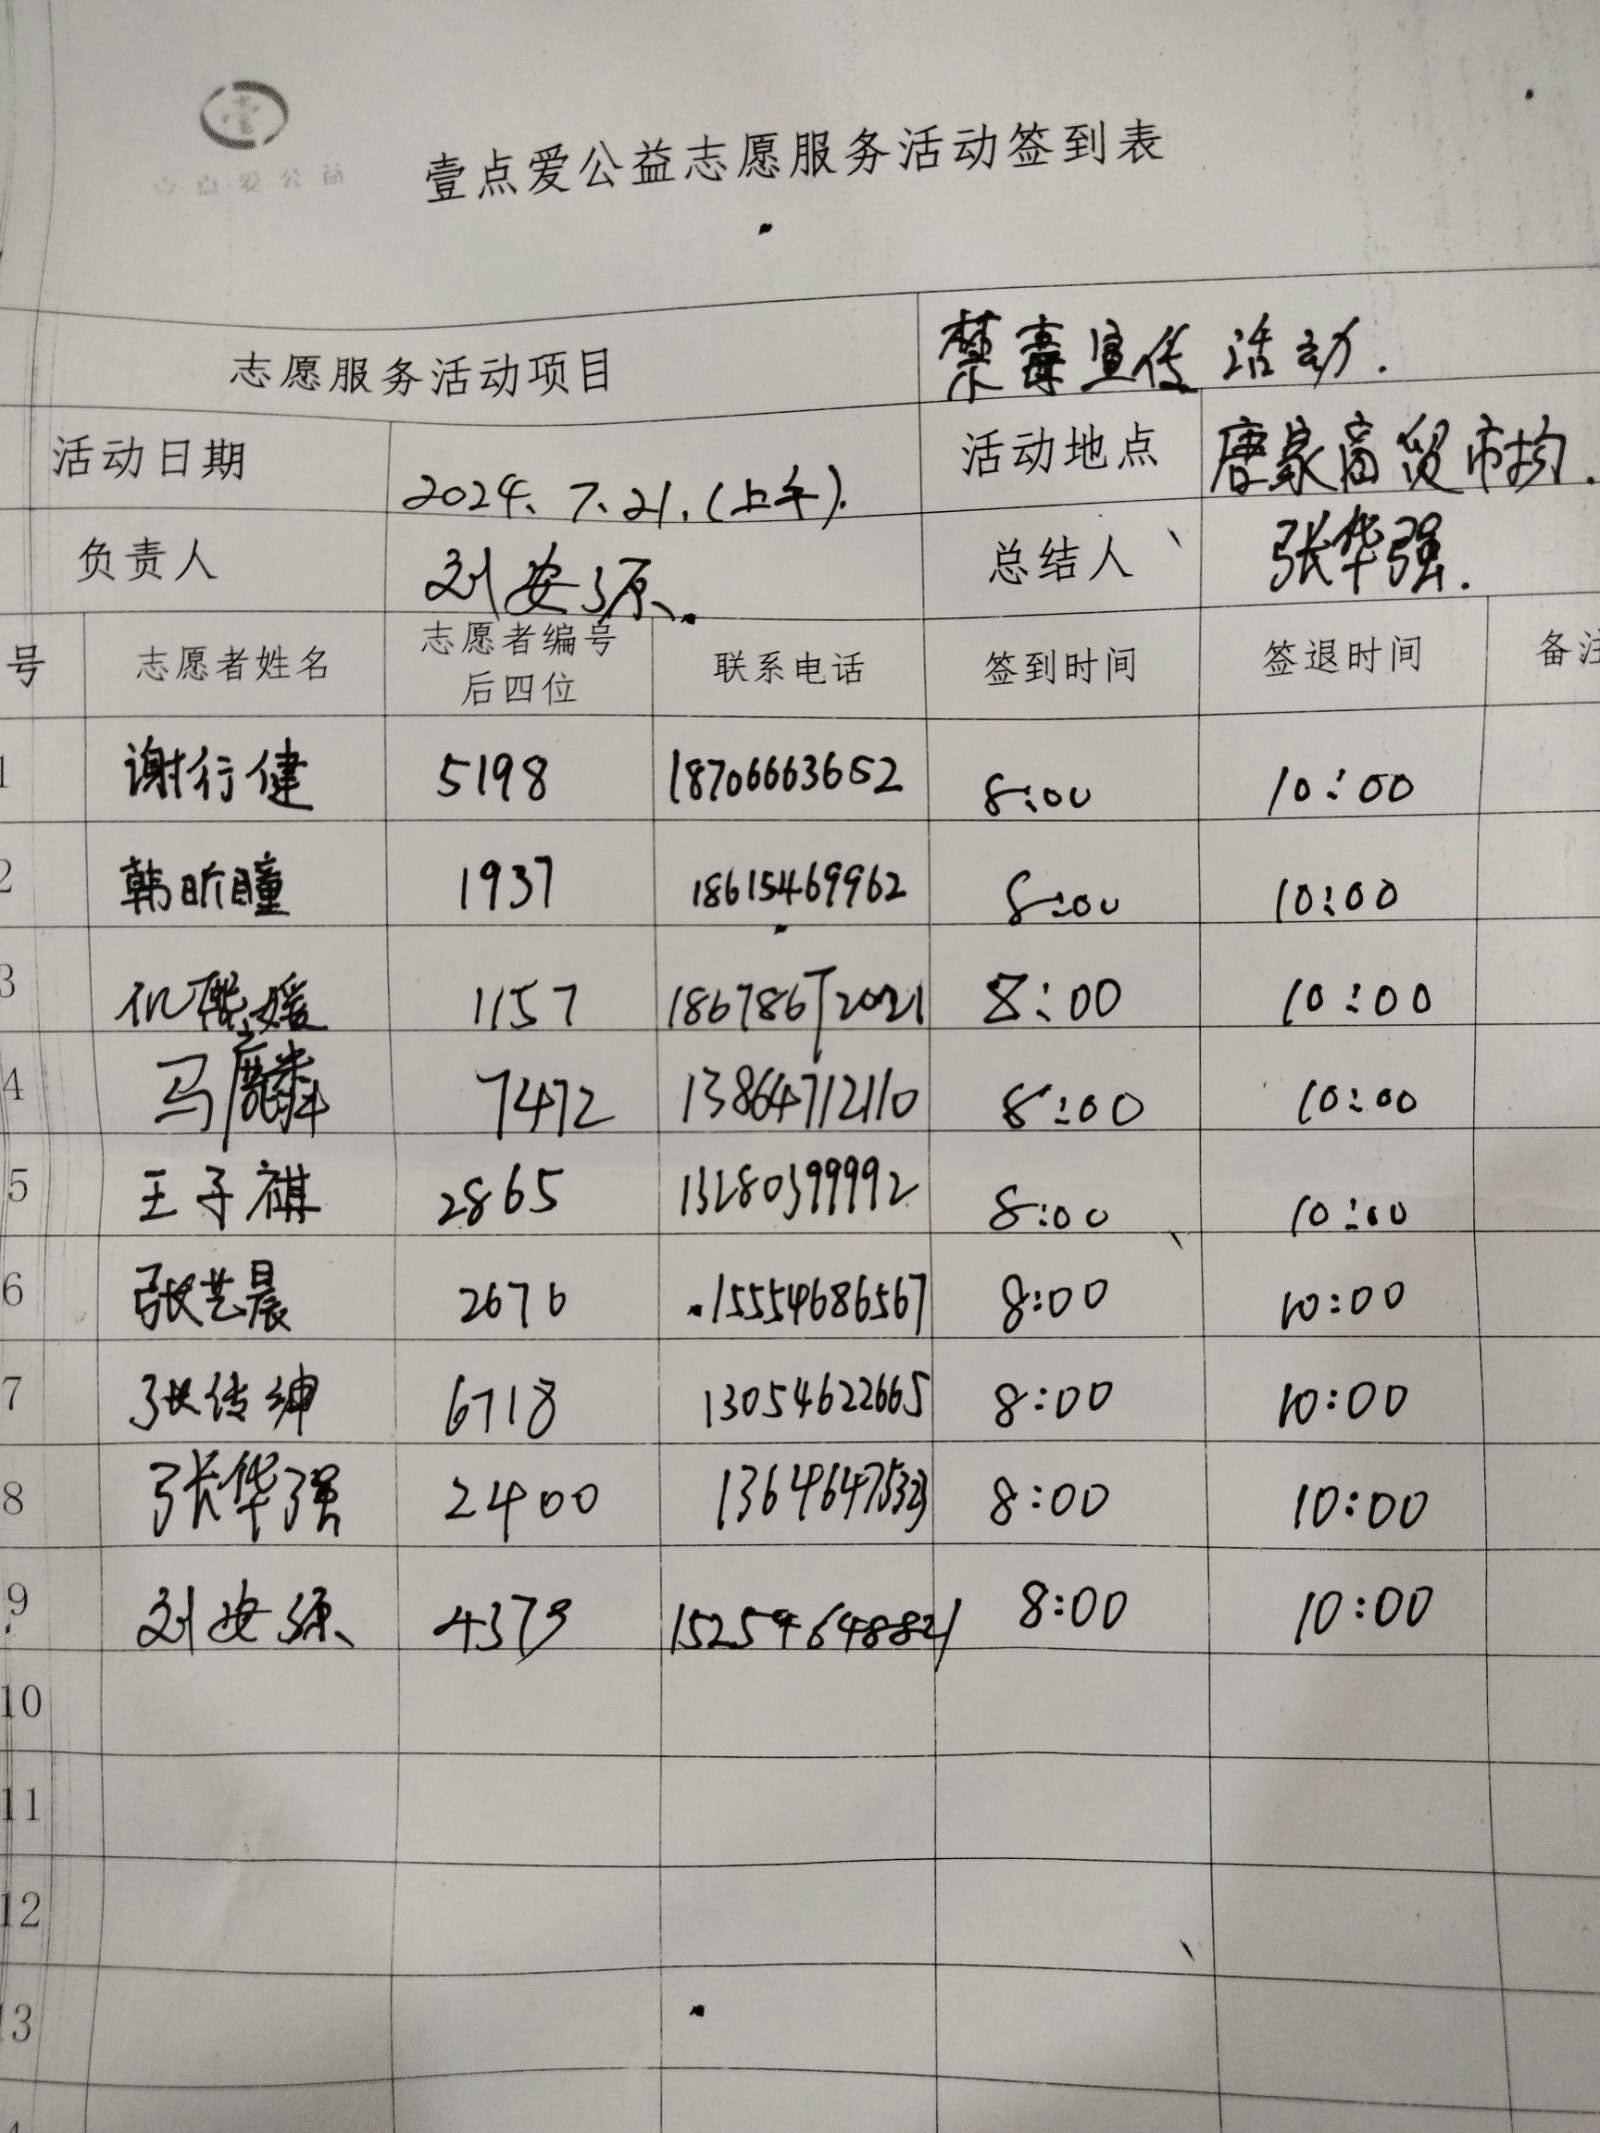 壹点爱公益
壹点爱公益志愿服务活动签到表
志愿服务活动项目 禁毒宣传活动.
活动日期 2024.7.21.(上午). 活动地点 唐家商贸市场.
负责人 刘安源. 总结人 张华强.
号 志愿者姓名 志愿者编号后四位 联系电话 签到时间 签退时间 备注
1 谢行健 5198 18706663652 8:00 10:00
2 韩昕瞳 1937 18615469962 8:00 10:00
3 1157 8:00 10:00
4 马麟 7472 13864712110 8:00 10:00
5 王子祺 2865 13280399992 8:00 10:00
6 张艺晨 2676 15554686567 8:00 10:00
7 张传绅 6718 13054622665 8:00 10:00
8 张华强 2400 13649647533 8:00 10:00
9 刘安源 4379 15254648821 8:00 10:00
10
11
12
13